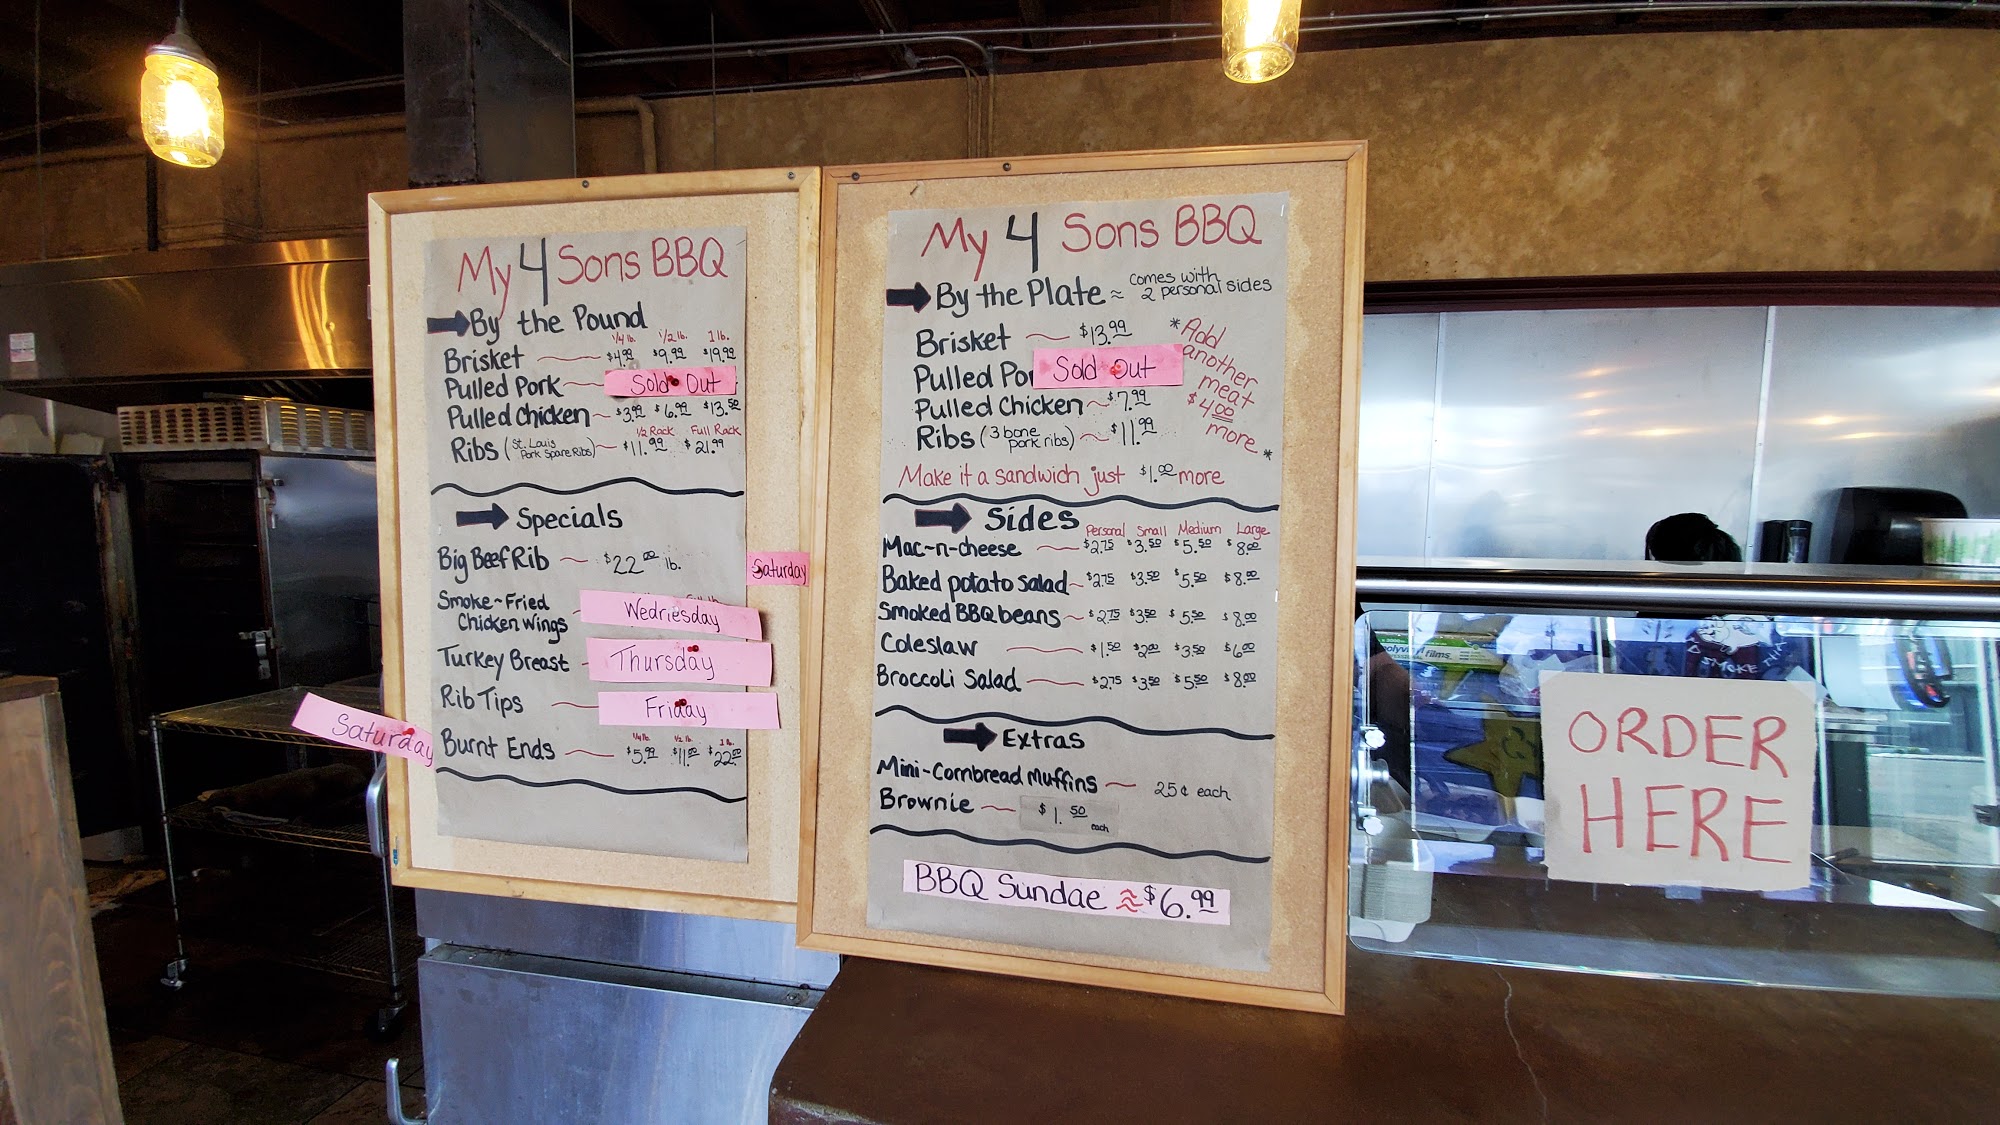 My 4 Sons BBQ
By the Pound
1/4 lb. 1/2 lb. 1 lb.
Brisket $4.99 $9.99 $19.99
Pulled Pork Sold Out
Pulled Chicken $3.99 $6.99 $13.50
1/2 Rack Full Rack
Ribs (St. Louis Pork Spare Ribs) $11.99 $21.99
Specials
Big Beef Rib $22.00 lb. Saturday
Smoke-Fried Chicken Wings Wednesday
Turkey Breast Thursday
Rib Tips Friday
Saturday
1/4 lb. 1/2 lb. 1 lb.
Burnt Ends $5.99 $11.00 $22.00
My 4 Sons BBQ
By the Plate ≈ comes with 2 personal sides
Brisket $13.99
Pulled Por Sold Out
Pulled Chicken $7.99
Ribs (3 bone pork ribs) $11.99
*Add
another
meat
$4.00
more*
Make it a sandwich just $1.00 more
Sides
Personal Small Medium Large
Mac-n-cheese $2.75 $3.50 $5.50 $8.00
Baked potato salad $2.75 $3.50 $5.50 $8.00
Smoked BBQ beans $2.75 $3.50 $5.50 $8.00
Coleslaw $1.50 $2.00 $3.50 $6.00
Broccoli Salad $2.75 $3.50 $5.50 $8.00
Extras
Mini-Cornbread Muffins 25¢ each
Brownie $1.50 each
BBQ Sundae $6.99
films
SMOKE
ORDER
HERE